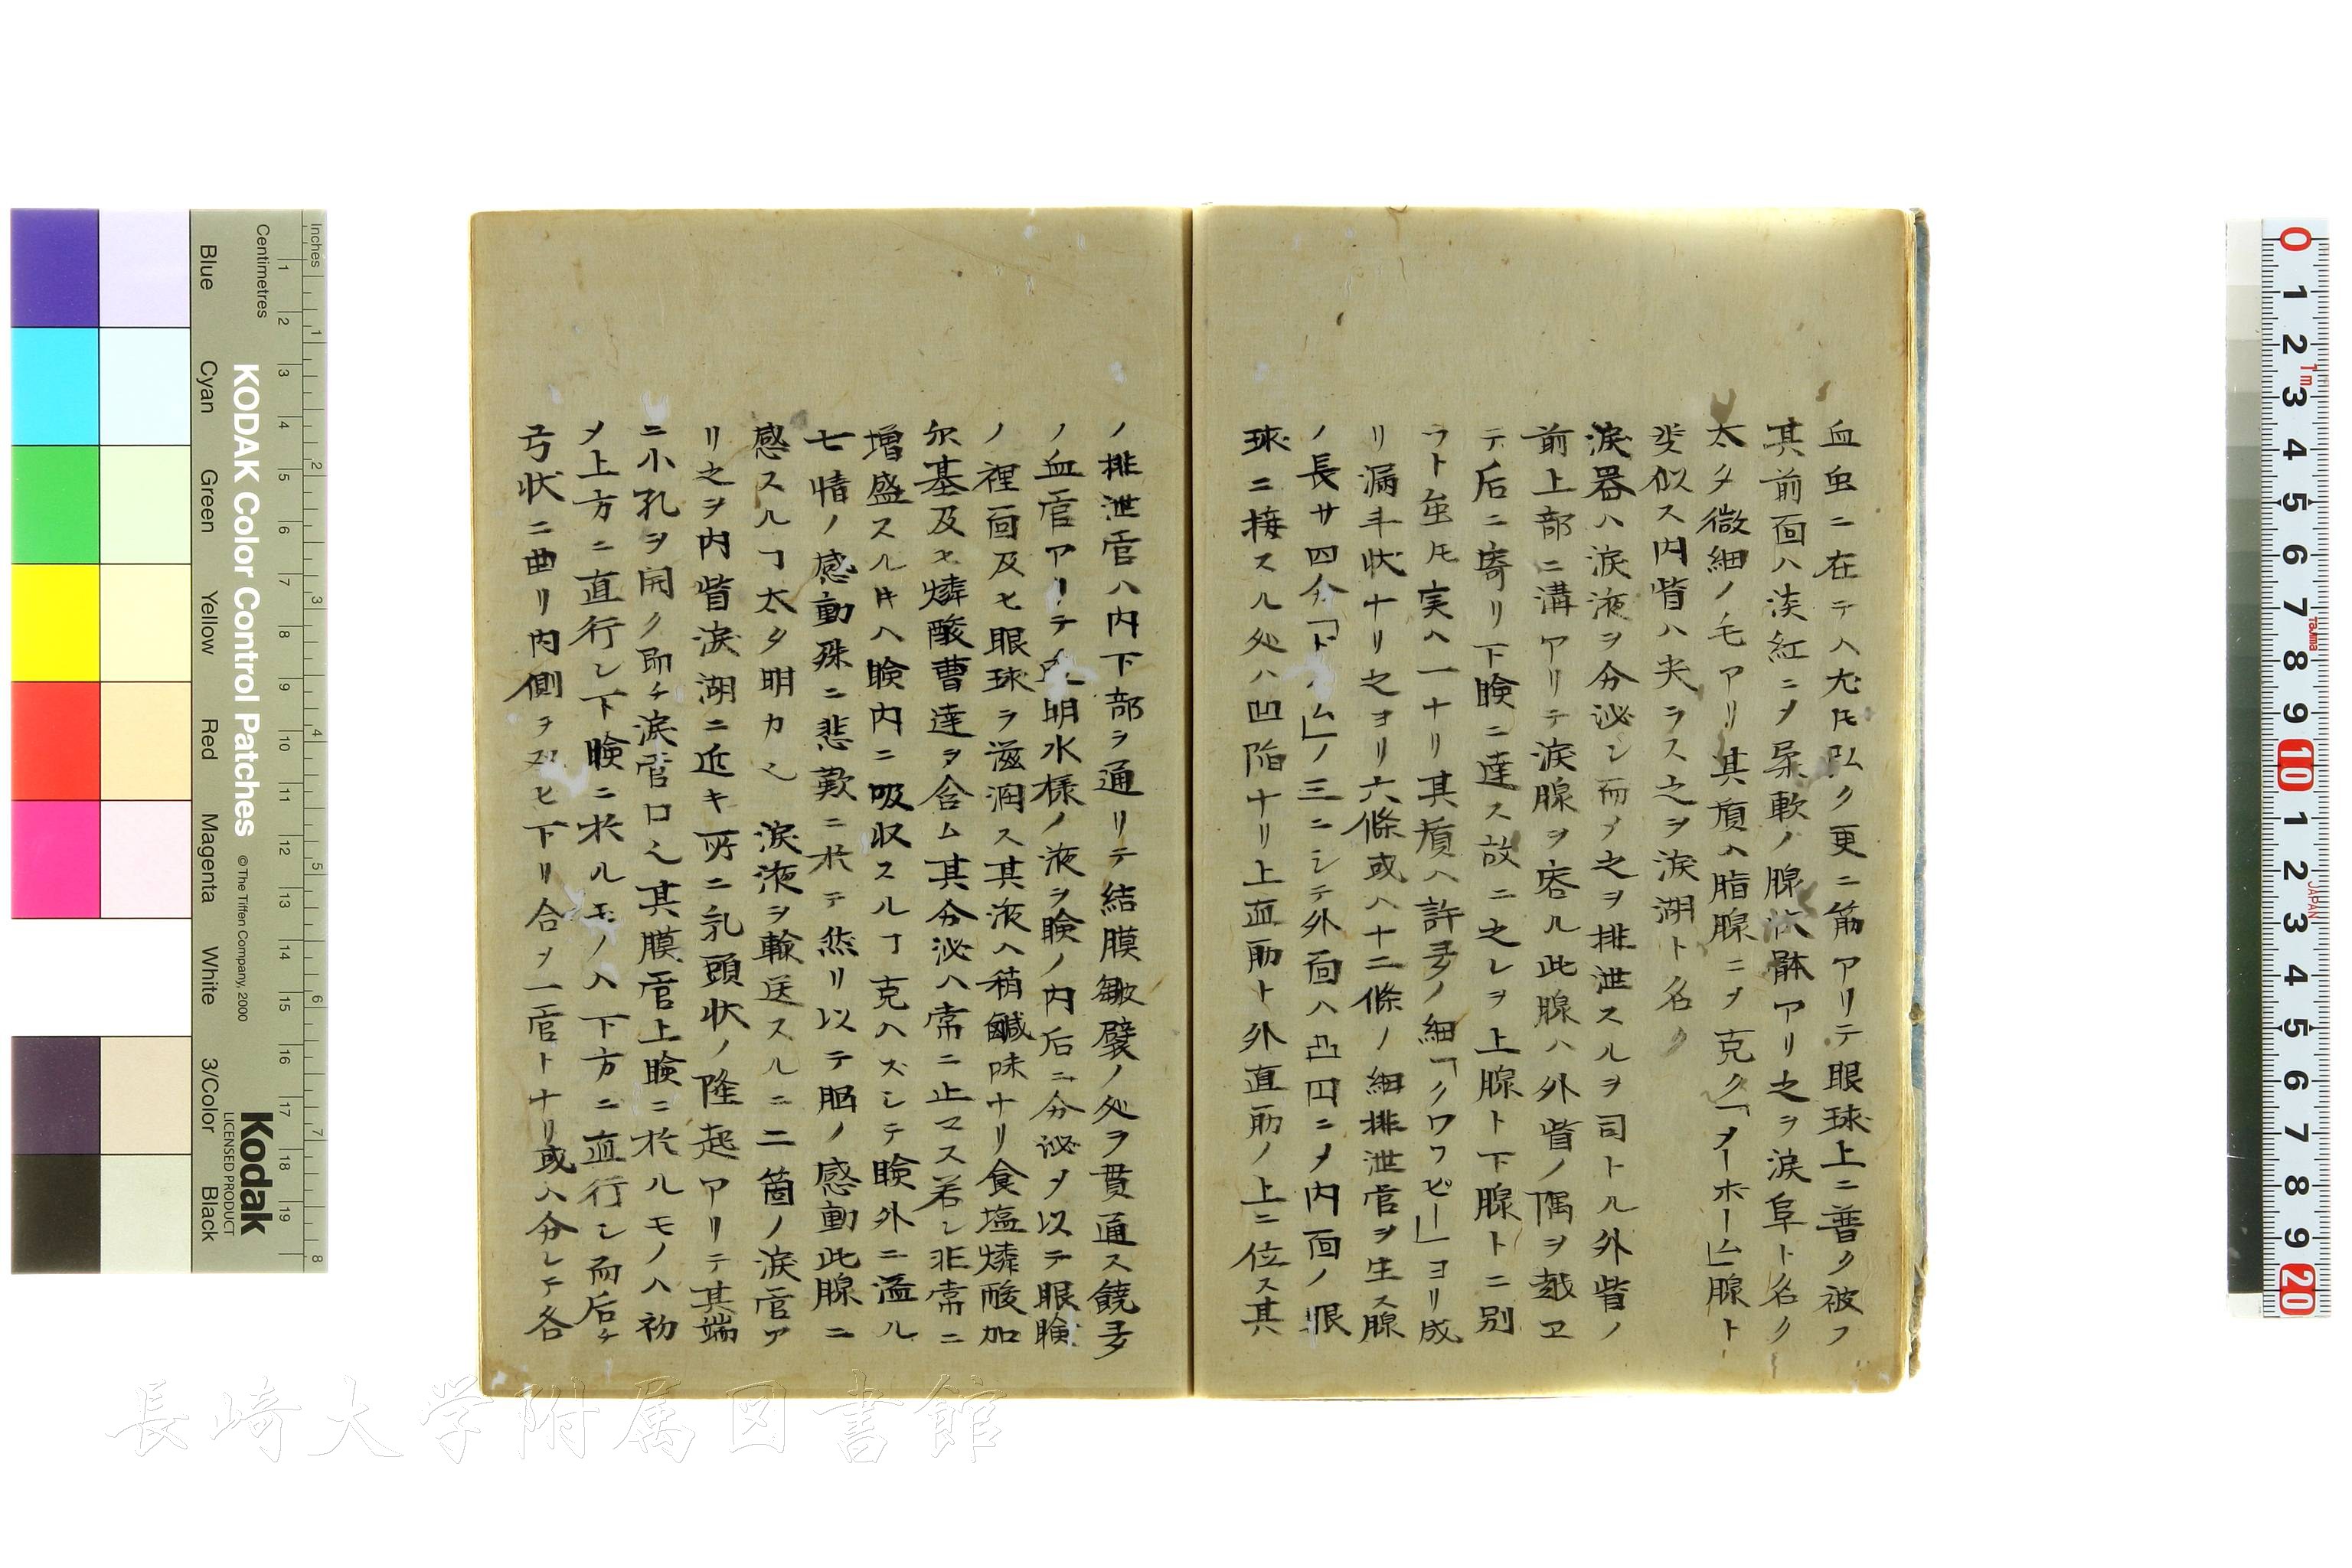 血虫ニ在テハ尤𪜈弘ク更ニ筋アリテ眼球上ニ普ク被フ
其前面ハ淡紅ニ〆柔軟ノ腺状体アリ之ヲ涙阜ト名ク
太タ微細ノ毛アリ其質ハ脂腺ニ〆克ク「メーボーム」腺ト
类似ス内眥ハ尖ラス之ヲ涙湖ト名ク
涙器ハ涙液ヲ分泌シ而〆之ヲ排泄スルヲ司トル外眥ノ
前上部ニ溝アリテ涙腺ヲ容ル此腺ハ外眥ノ隅ヲ越ヱ
テ后ニ寄リ下瞼ニ達ス故ニ之レヲ上腺ト下腺トニ別
ツト虽𪜈実ハ一ナリ其質ハ許多ノ細「クワワピー」ヨリ成
リ漏斗状ナリ之ヨリ六條或ハ十二條ノ細排泄官ヲ生ス腺
ノ長サ四分「ドイム」ノ三ニシテ外面ハ凸円ニ〆内面ノ眼
球ニ接スル処ハ凹陥ナリ上直筋ト外直筋ノ上ニ位ス其
ノ排泄官ハ内下部ヲ通リテ結膜皺襞ノ処ヲ貫通ス饒多
ノ血官アリテ 明水様ノ液ヲ瞼ノ内后ニ分泌〆以テ眼瞼
ノ裡面及ヒ眼球ヲ滋潤ス其液ハ稍鹹味ナリ食塩燐酸加
尔基及ヒ燐酸曹達ヲ含ム其分泌ハ常ニ止マス若シ非常ニ
増盛スル𪜈ハ瞼内ニ吸収スルヿ克ハズシテ瞼外ニ溢ル
七情ノ感動殊ニ悲歎ニ於テ然リ以テ脳ノ感動此腺ニ
感スルヿ太タ明カ也 涙液ヲ輸送スルニ二箇ノ涙官ア
リ之ヲ内眥涙湖ニ近キ所ニ乳頭状ノ隆起アリテ其端
ニ小孔ヲ開ク即チ涙官口也其膜官上瞼ニ於ルモノハ初
メ上方ニ直行シ下瞼ニ於ルモノハ下方ニ直行シ而后チ
弓状ニ曲リ内側ヲ 下リ合〆一官トナリ或ハ分レテ各
KODAK Color Control Patches
© The Tiffen Company, 2000
Kodak
LICENSED PRODUCT
Inches
Centimetres
Blue
Cyan
Green
Yellow
Red
Magenta
White
3/Color
Black
長崎大学附属図書館